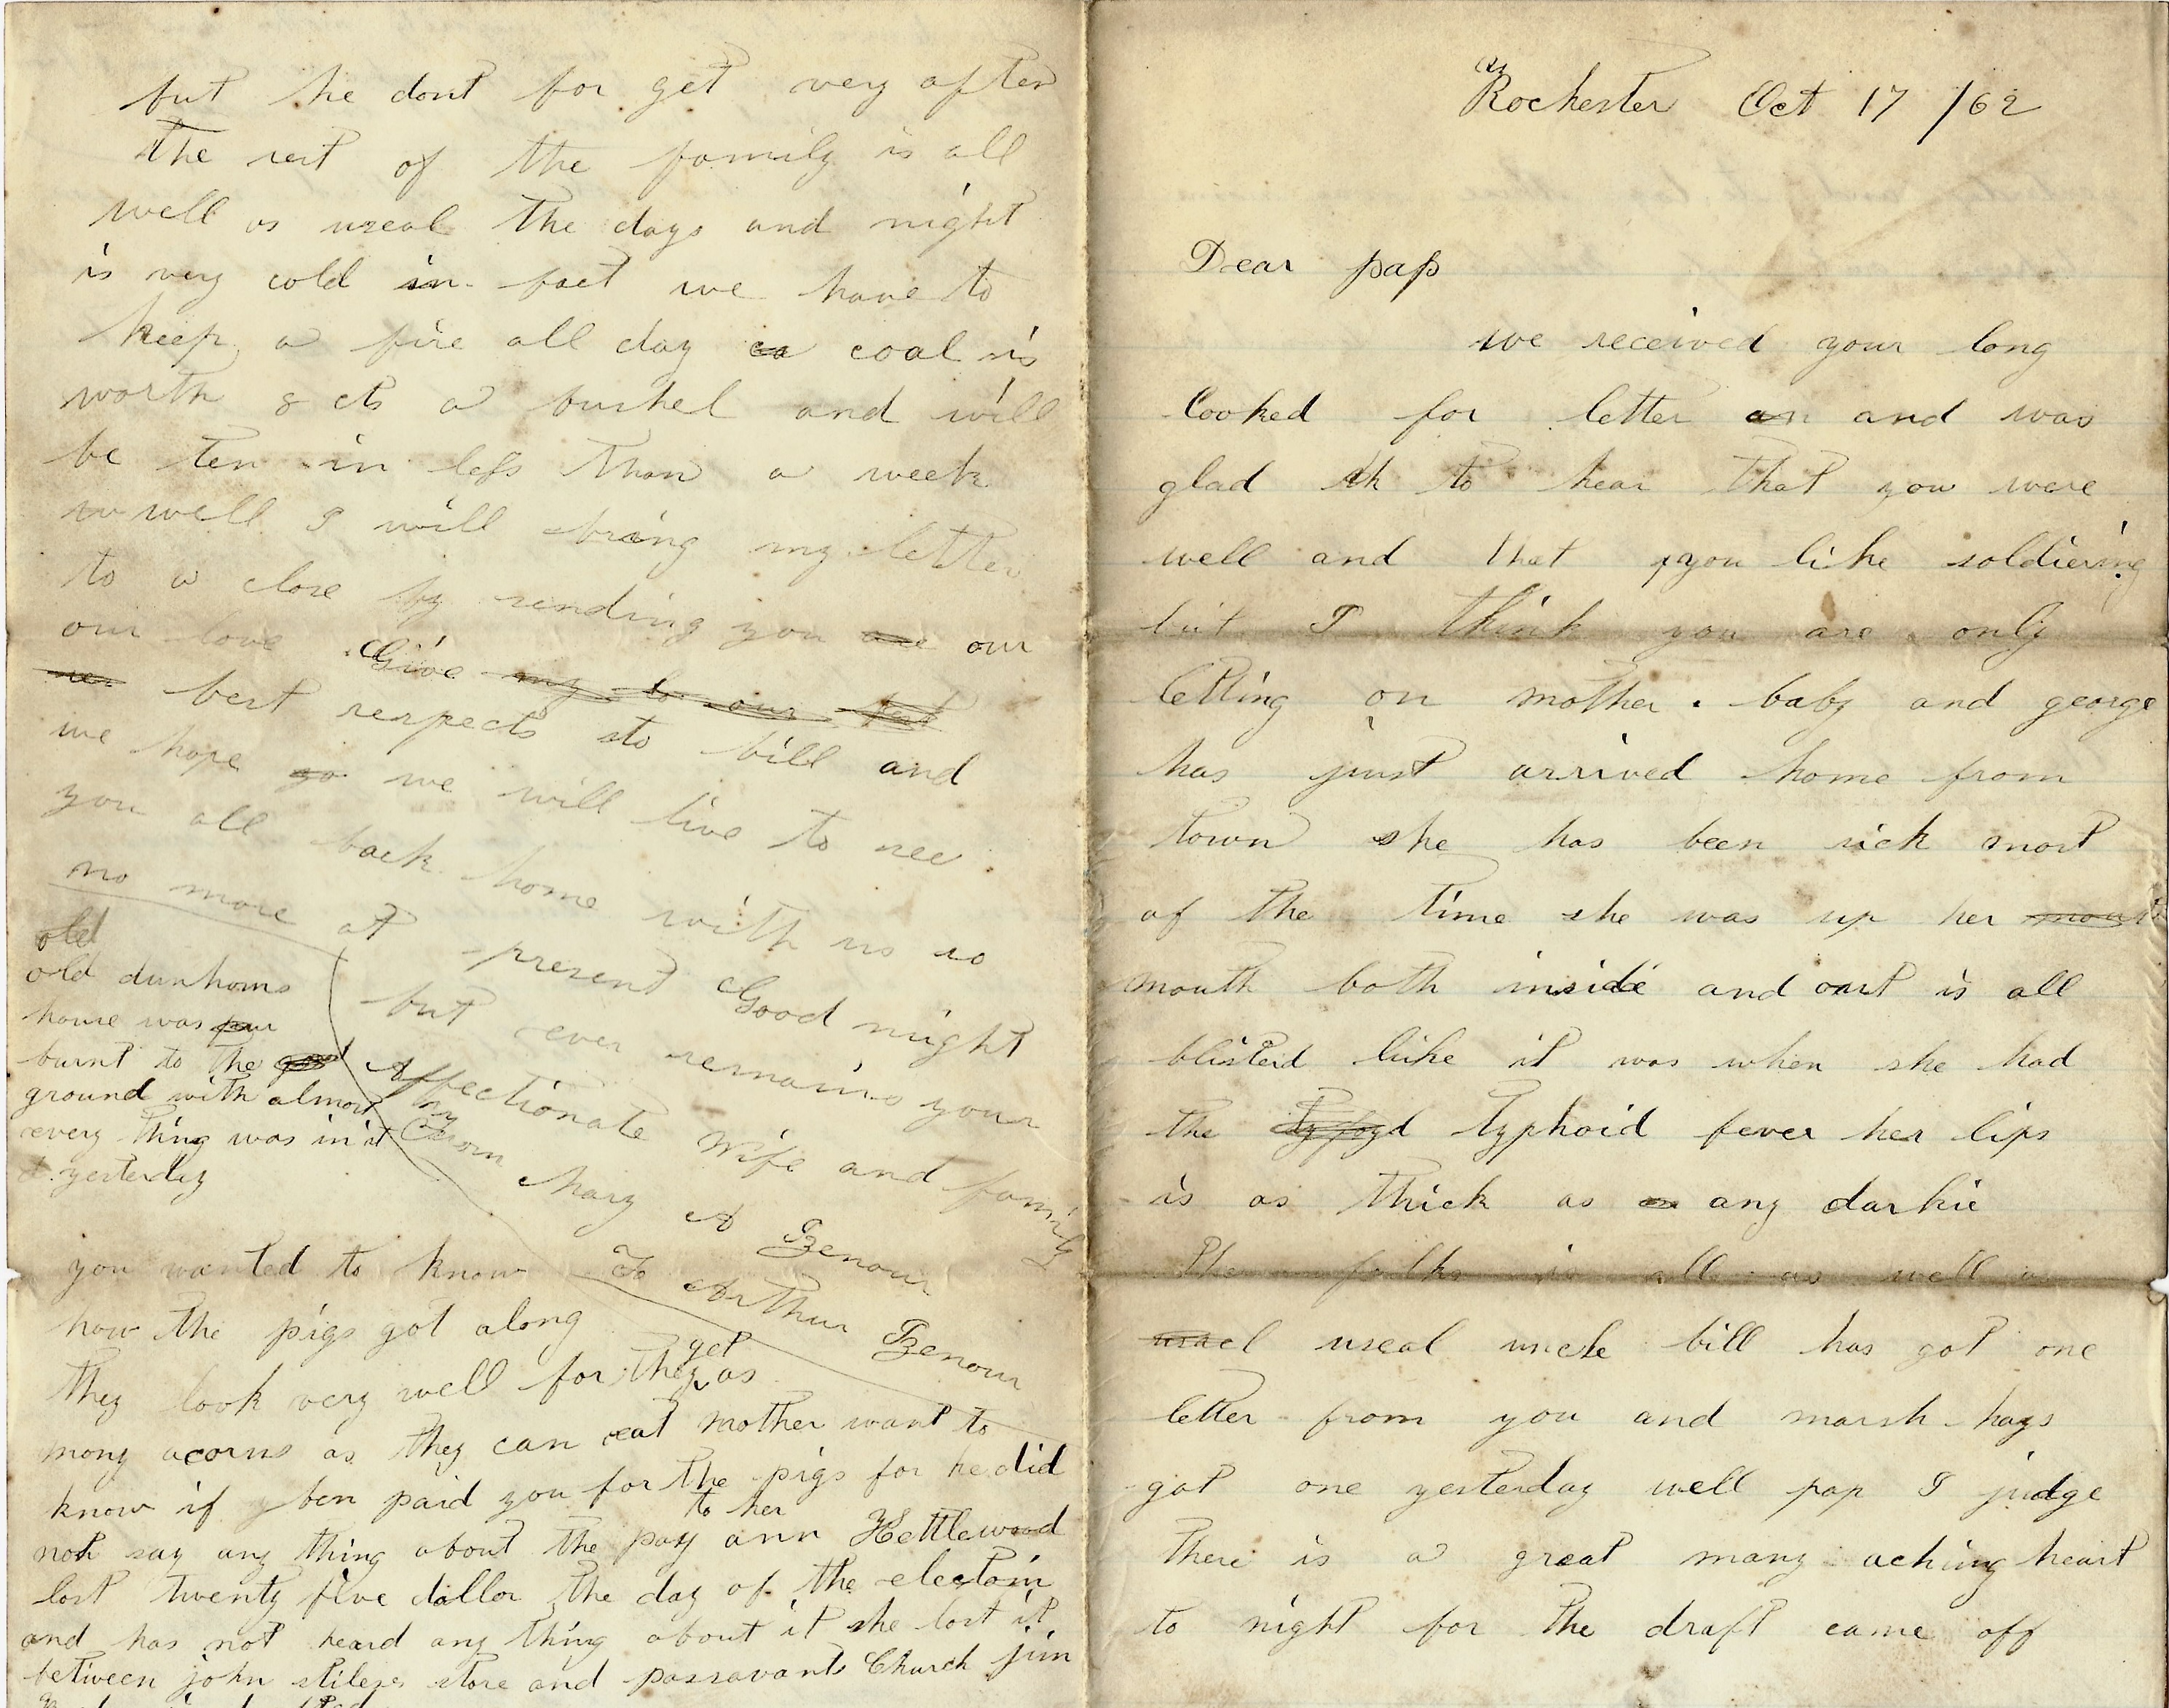 Rochester Oct 17 /62
Dear pap
we received your long
looked for letter an and was
glad th to hear that you were
well and that you like soldiering
but I think you are only
letting on mother . baby and george
has just arrived home from
town she has been sick most
of the time she was up her mout
mouth both inside and out is all
blisterd like it was when she had
the typhoid fever her lips
is as thick as any darkie
The folks is all as well as
useal useal uncle bill has got one
letter from you and marsh hays
got one yesterday well pap I judge
there is a great many aching heart
to night for the draft came off
but he dont for get very often
The rest of the family is all
well as useal the days and night
is very cold in fact we have to
keep a fire all day ca coal is
worth 8 cts a bushel and will
be ten in less than a week
w well I will bring my letter
to a close by sending you our
our love Give my to our best
best respects to bill and
we hope yo we will live to see
you all back home with us so
no more at present Good night
but ever remains your
Affectionate wife and family
from Mary A Benour
To Arthur Benour
old
old dunhams
house was
burnt to the
ground with almost
every thing was in it
yesterday
you wanted to know
how the pigs got along
they look very well for they get as
many acorns as they can eat mother want to
know if ben paid you for the pigs for he did
not say any thing about the pay to her ann Kettlewood
lost twenty five dollar the day of the electoin
and has not heard any thing about it she lost it
between john stiless store and passavants Church jim